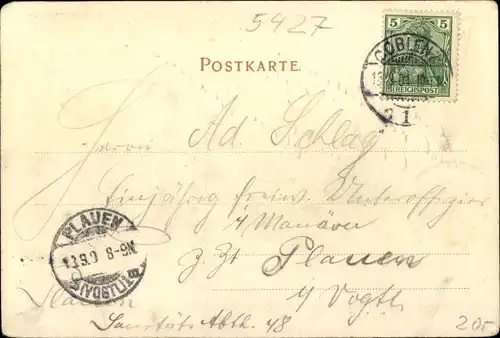 5427
POSTKARTE.
5
REICHSPOST
COBLENZ
Herrn Ad Schlag
Einjährig freiw. Unteroffizier
z Manöver
z. Zt. Plauen
i/ Vogtl
PLAUEN
8-9N
Sanitäts Abth. 48
20-